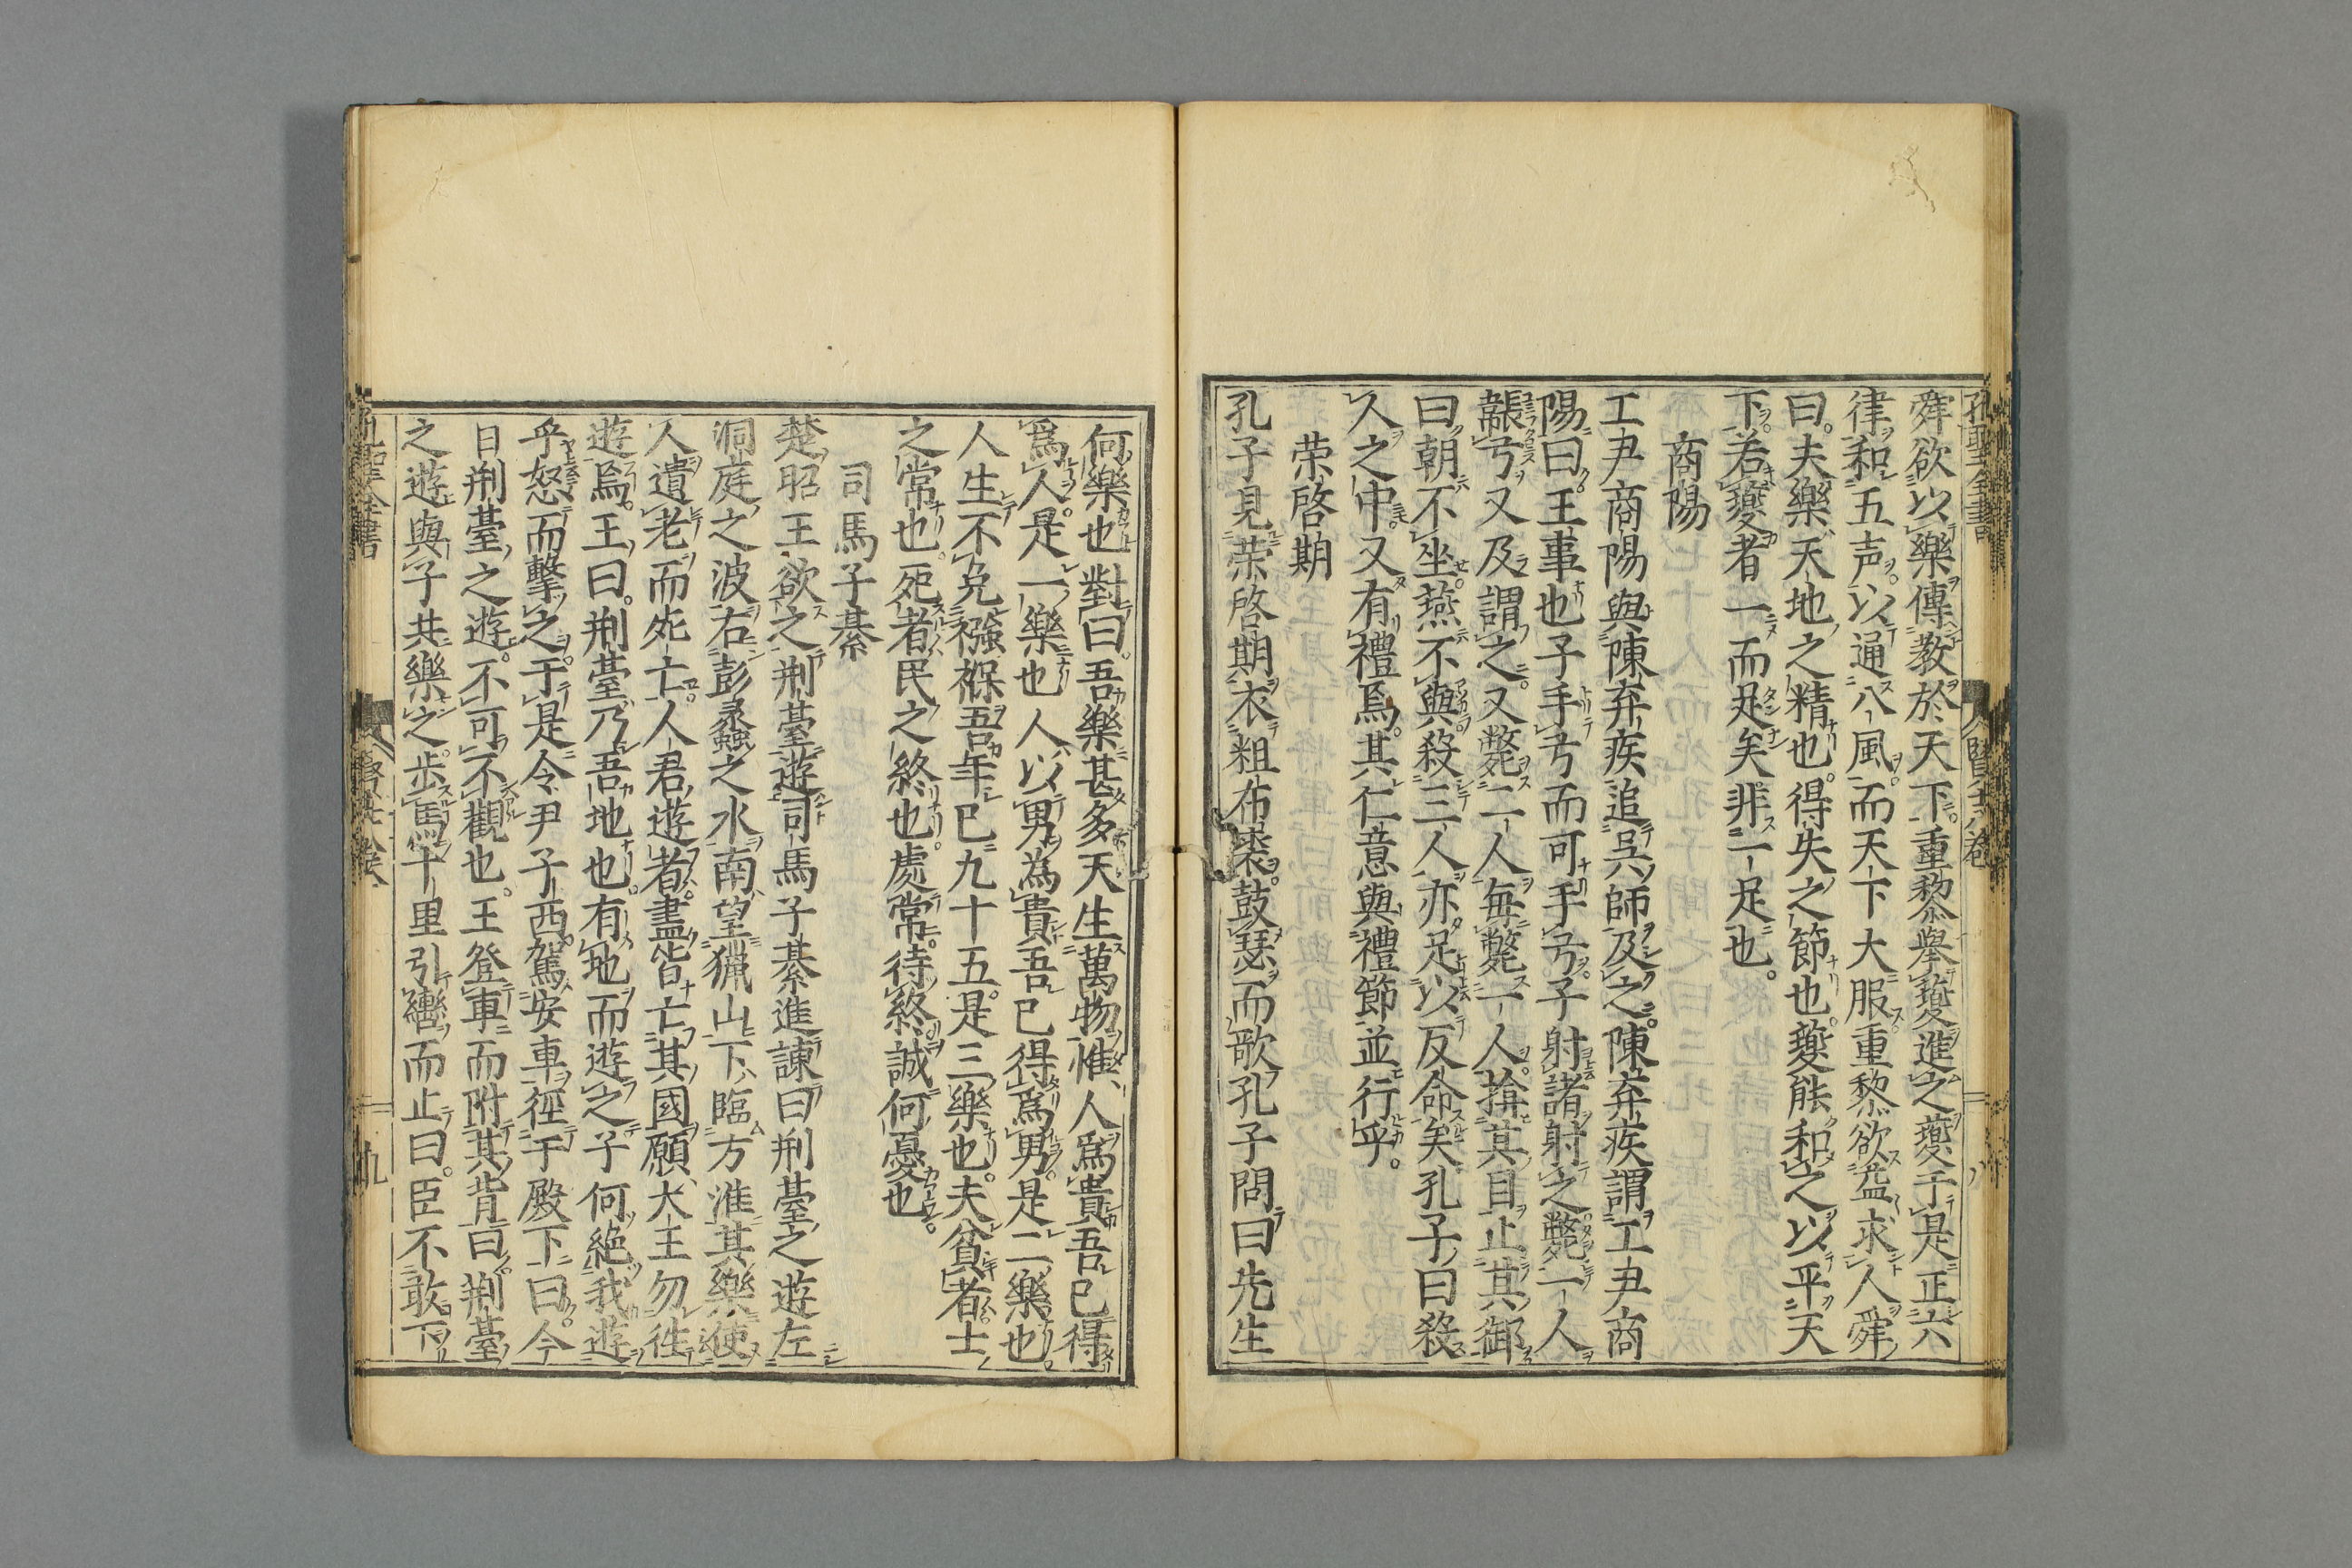 舜欲以樂傳教於天下重黎舉夔進之夔于是正六
律和五声以通八風而天下大服重黎欲益求人舜
曰夫樂天地之精也得失之節也夔能和之以平天
下若夔者一而足矣非一足也
商陽
工尹商陽與陳弃疾追吳師及之陳弃疾謂工尹商
陽曰王事也子手弓而可手弓子射諸射之斃一人
韔弓又及謂之又斃二人每斃一人揜其目止其御
曰朝不坐燕不與殺三人亦足以反命矣孔子曰殺
人之中又有禮焉其仁意與禮節並行乎
荣啓期
孔子見荣啓期衣粗布裘鼓瑟而歌孔子問曰先生
何樂也對曰吾樂甚多天生萬物惟人爲貴吾已得
爲人是一樂也人以男為貴吾已得爲男是二樂也
人生不免襁褓吾年已九十五是三樂也夫貧者士
之常也死者民之終也處常待終誠何憂也
司馬子綦
楚昭王欲之荆臺遊司馬子綦進諫曰荆臺之遊左
洞庭之波右彭蠡之水南望猟山下臨方淮其樂使
人遺老而死亡人君遊者盡皆亡其國願大王勿徃
遊焉王曰荆臺乃吾地也有地而遊之子何絶我遊
乎怒而擊之于是令尹子西駕安車徑于殿下曰今
日荆臺之遊不可不觀也王登車而附其背曰荆臺
之遊與子共樂之步馬十里引轡而止曰臣不敢下
孔聖全書
八
九